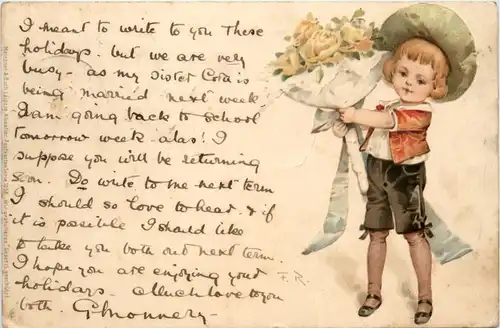 I meant to write to you these
holidays. but we are very
busy - as my sister Cora is
being married next week.
I am going back to school
tomorrow week - alas! I
suppose you will be returning
soon. Do write to me next term
I should so love to hear & if
it is possible I should like
to take you both out next term.
I hope you are enjoying your
holidays. Much love to you
both.
F. R.